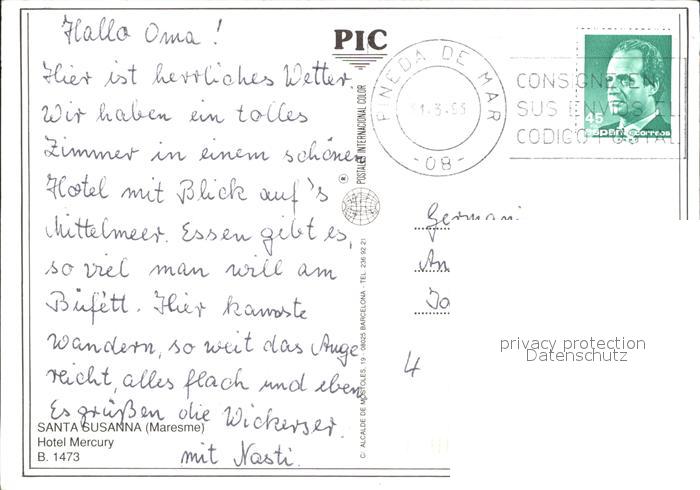 Hallo Oma!
Hier ist herrliches Wetter.
Wir haben ein tolles
Zimmer in einem schönen
Hotel mit Blick auf's
Mittelmeer. Essen gibt es,
so viel man will am
Büfétt. Hier kannste
wandern, so weit das Auge
reicht, alles flach und eben
Es grüßen die Wickerser
mit Nasti.
SANTA SUSANNA (Maresme)
Hotel Mercury
B. 1473
PIC
® POSTALES INTERNACIONAL COLOR
C/. ALCALDE DE MOSTOLES, 19 - 08025 BARCELONA - TEL. 236 92 21
PINEDA DE MAR
-08-
CONSIGNE EN
SUS ENVIOS EL
CODIGO POSTAL
45
españa correos
Germani
An
4
privacy protection
Datenschutz